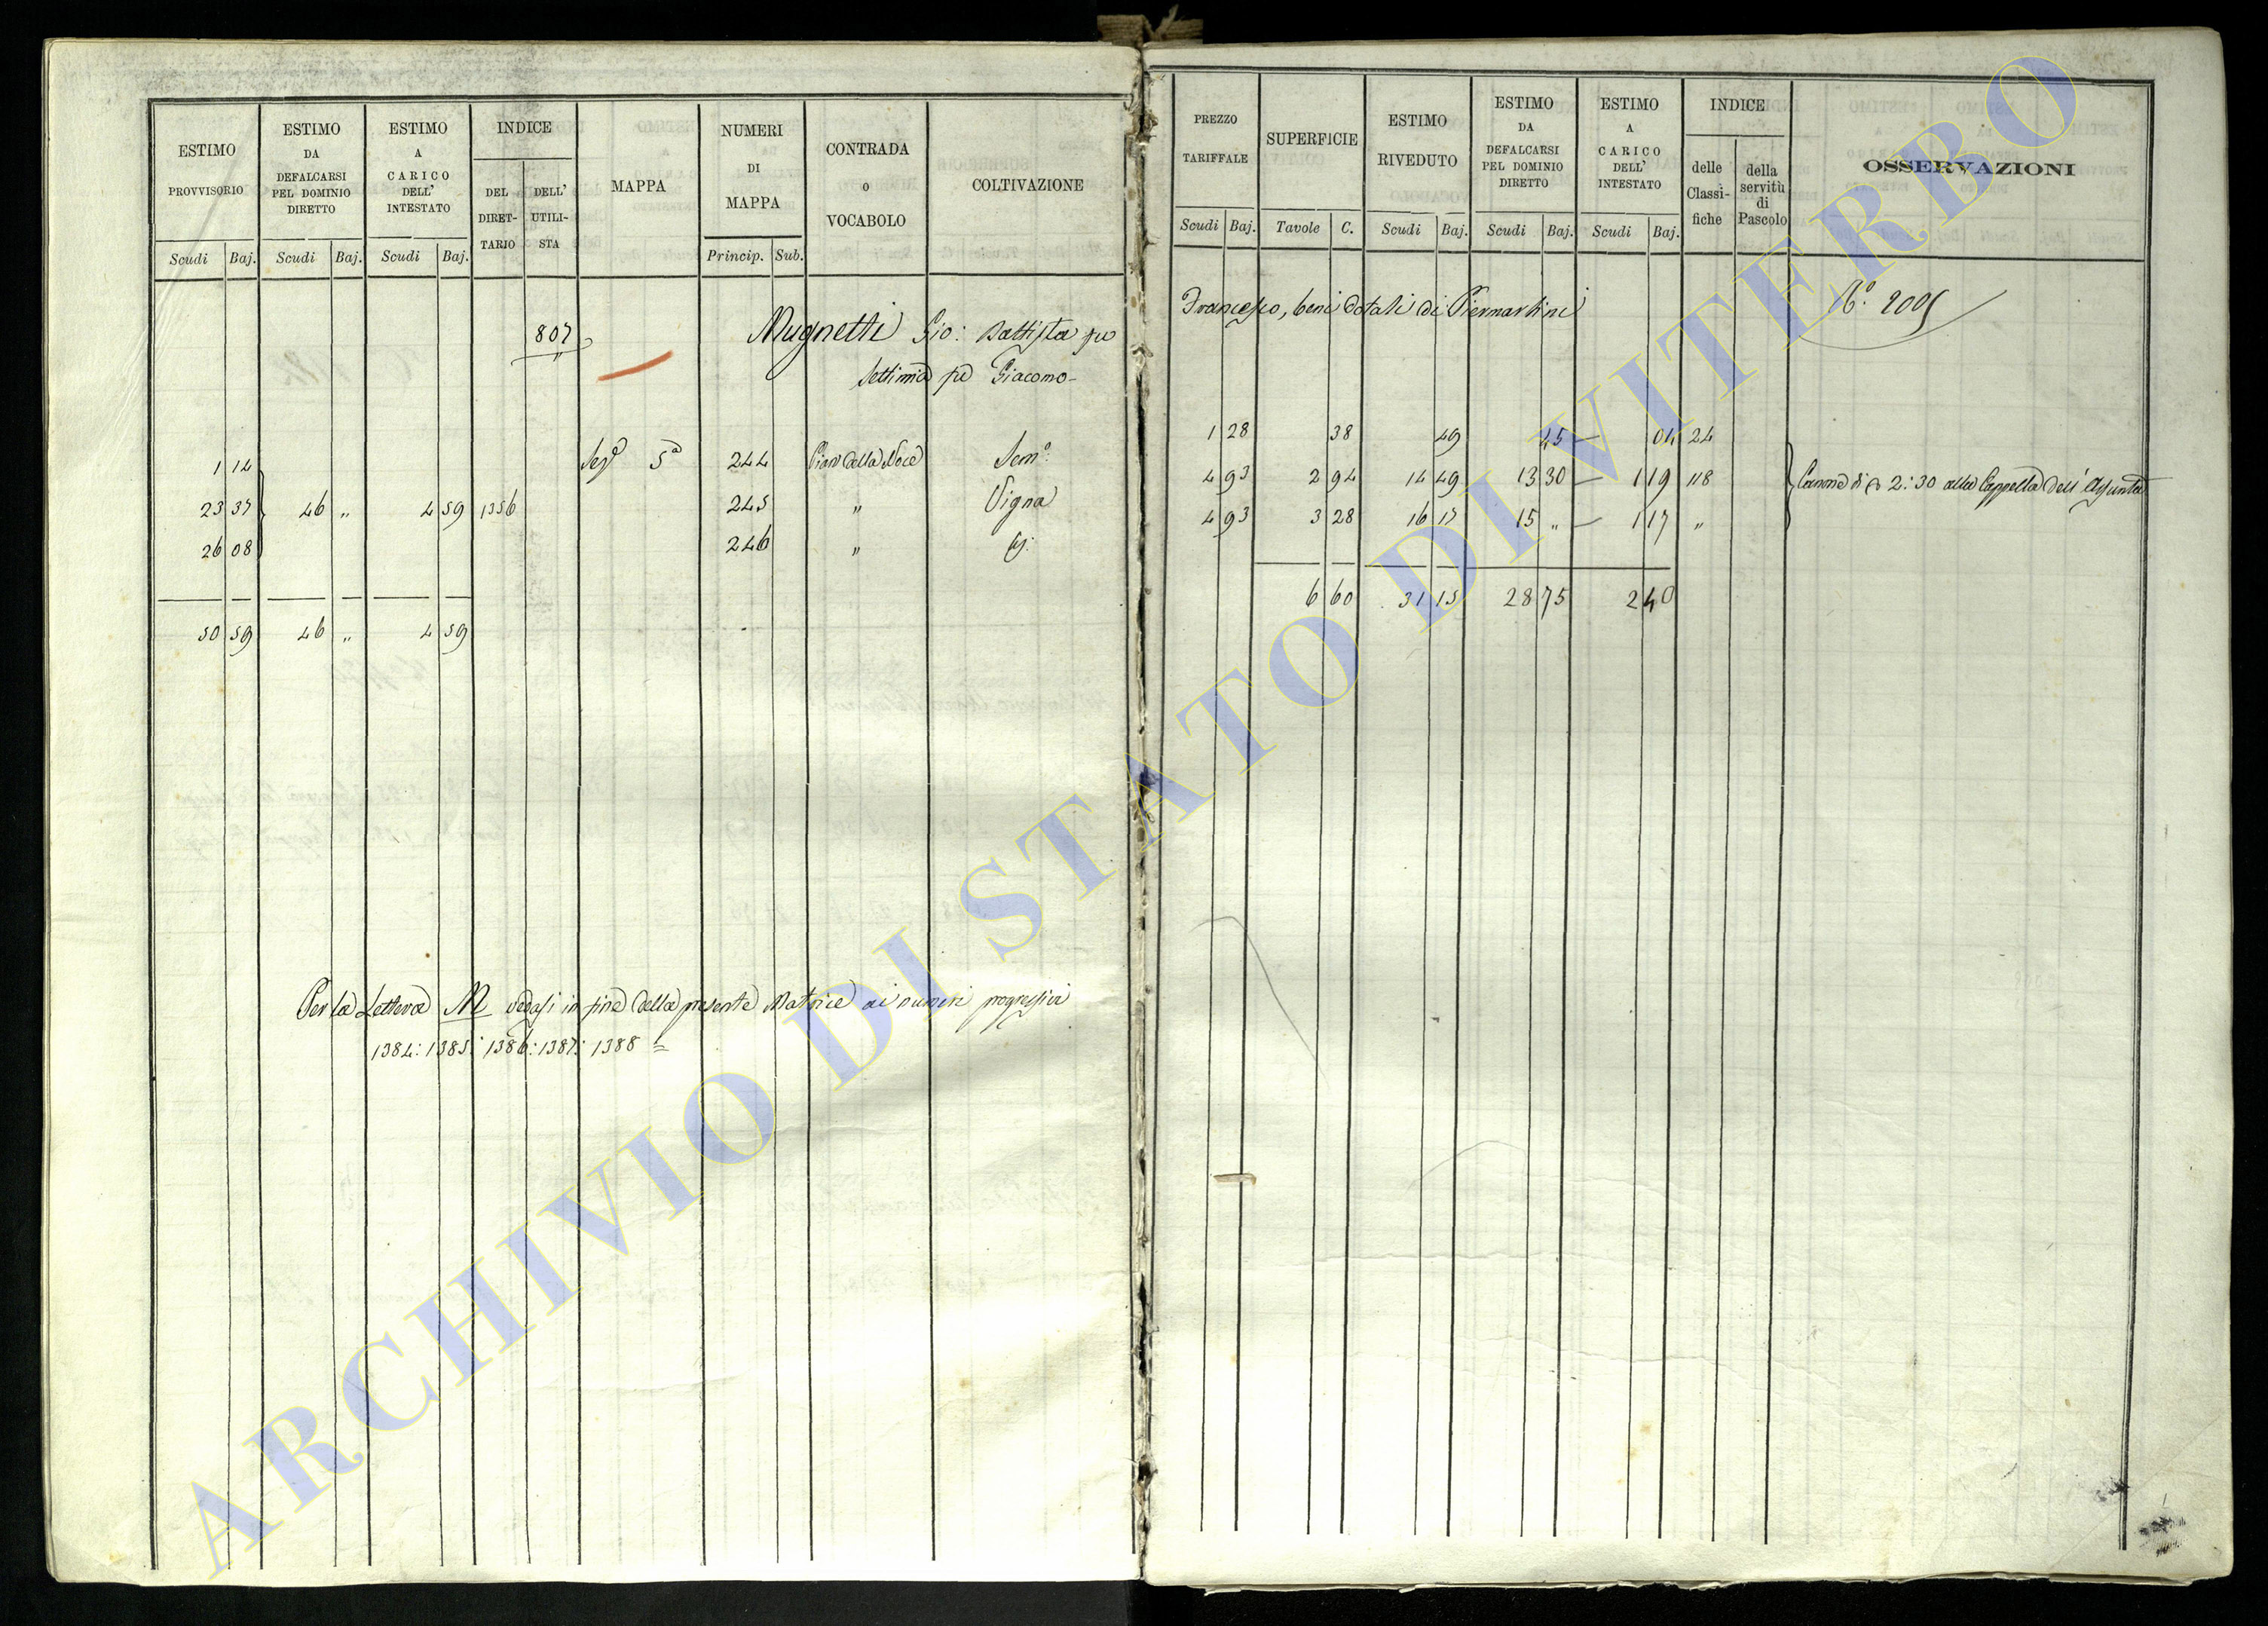 ESTIMO PROVVISORIO | ESTIMO DA DEFALCARSI PEL DOMINIO DIRETTO | ESTIMO A CARICO DELL' INTESTATO | INDICE | MAPPA | NUMERI DI MAPPA | CONTRADA O VOCABOLO | COLTIVAZIONE
DEL DIRETTARIO | DELL' UTILISTA
Scudi | Baj. | Scudi | Baj. | Scudi | Baj. | Princip. | Sub.
807 Mugnetti Gio: Battista fu
Settimio fu Giacomo
1 14 | Sez.e 5a | 244 | Pian della Noce | Sem.o
23 37 | 46 „ | 4 59 | 1356 | 245 | „ | Vigna
26 08 | 246 | „ |
50 59 | 46 „ | 4 59
Per la Lettera M vedasi in fine della presente Matrice ai numeri progressivi
1384: 1385: 1386: 1387: 1388 =
PREZZO TARIFFALE | SUPERFICIE | ESTIMO RIVEDUTO | ESTIMO DA DEFALCARSI PEL DOMINIO DIRETTO | ESTIMO A CARICO DELL' INTESTATO | INDICE | OSSERVAZIONI
delle Classifiche | della servitù di Pascolo
Scudi | Baj. | Tavole | C. | Scudi | Baj. | Scudi | Baj. | Scudi | Baj.
Francesco, beni dotali di Piermartini
N.o 2005
1 28 | 38 | 49 | 45 — | 04 | 24
4 93 | 2 94 | 14 49 | 13 30 — | 1 19 | 118 | Canone di 2:30 alla Cappella dell'Assunta
4 93 | 3 28 | 16 17 | 15 „ — | 1 17 | „
6 60 | 31 15 | 28 75 | 2 40
ARCHIVIO DI STATO DI VITERBO